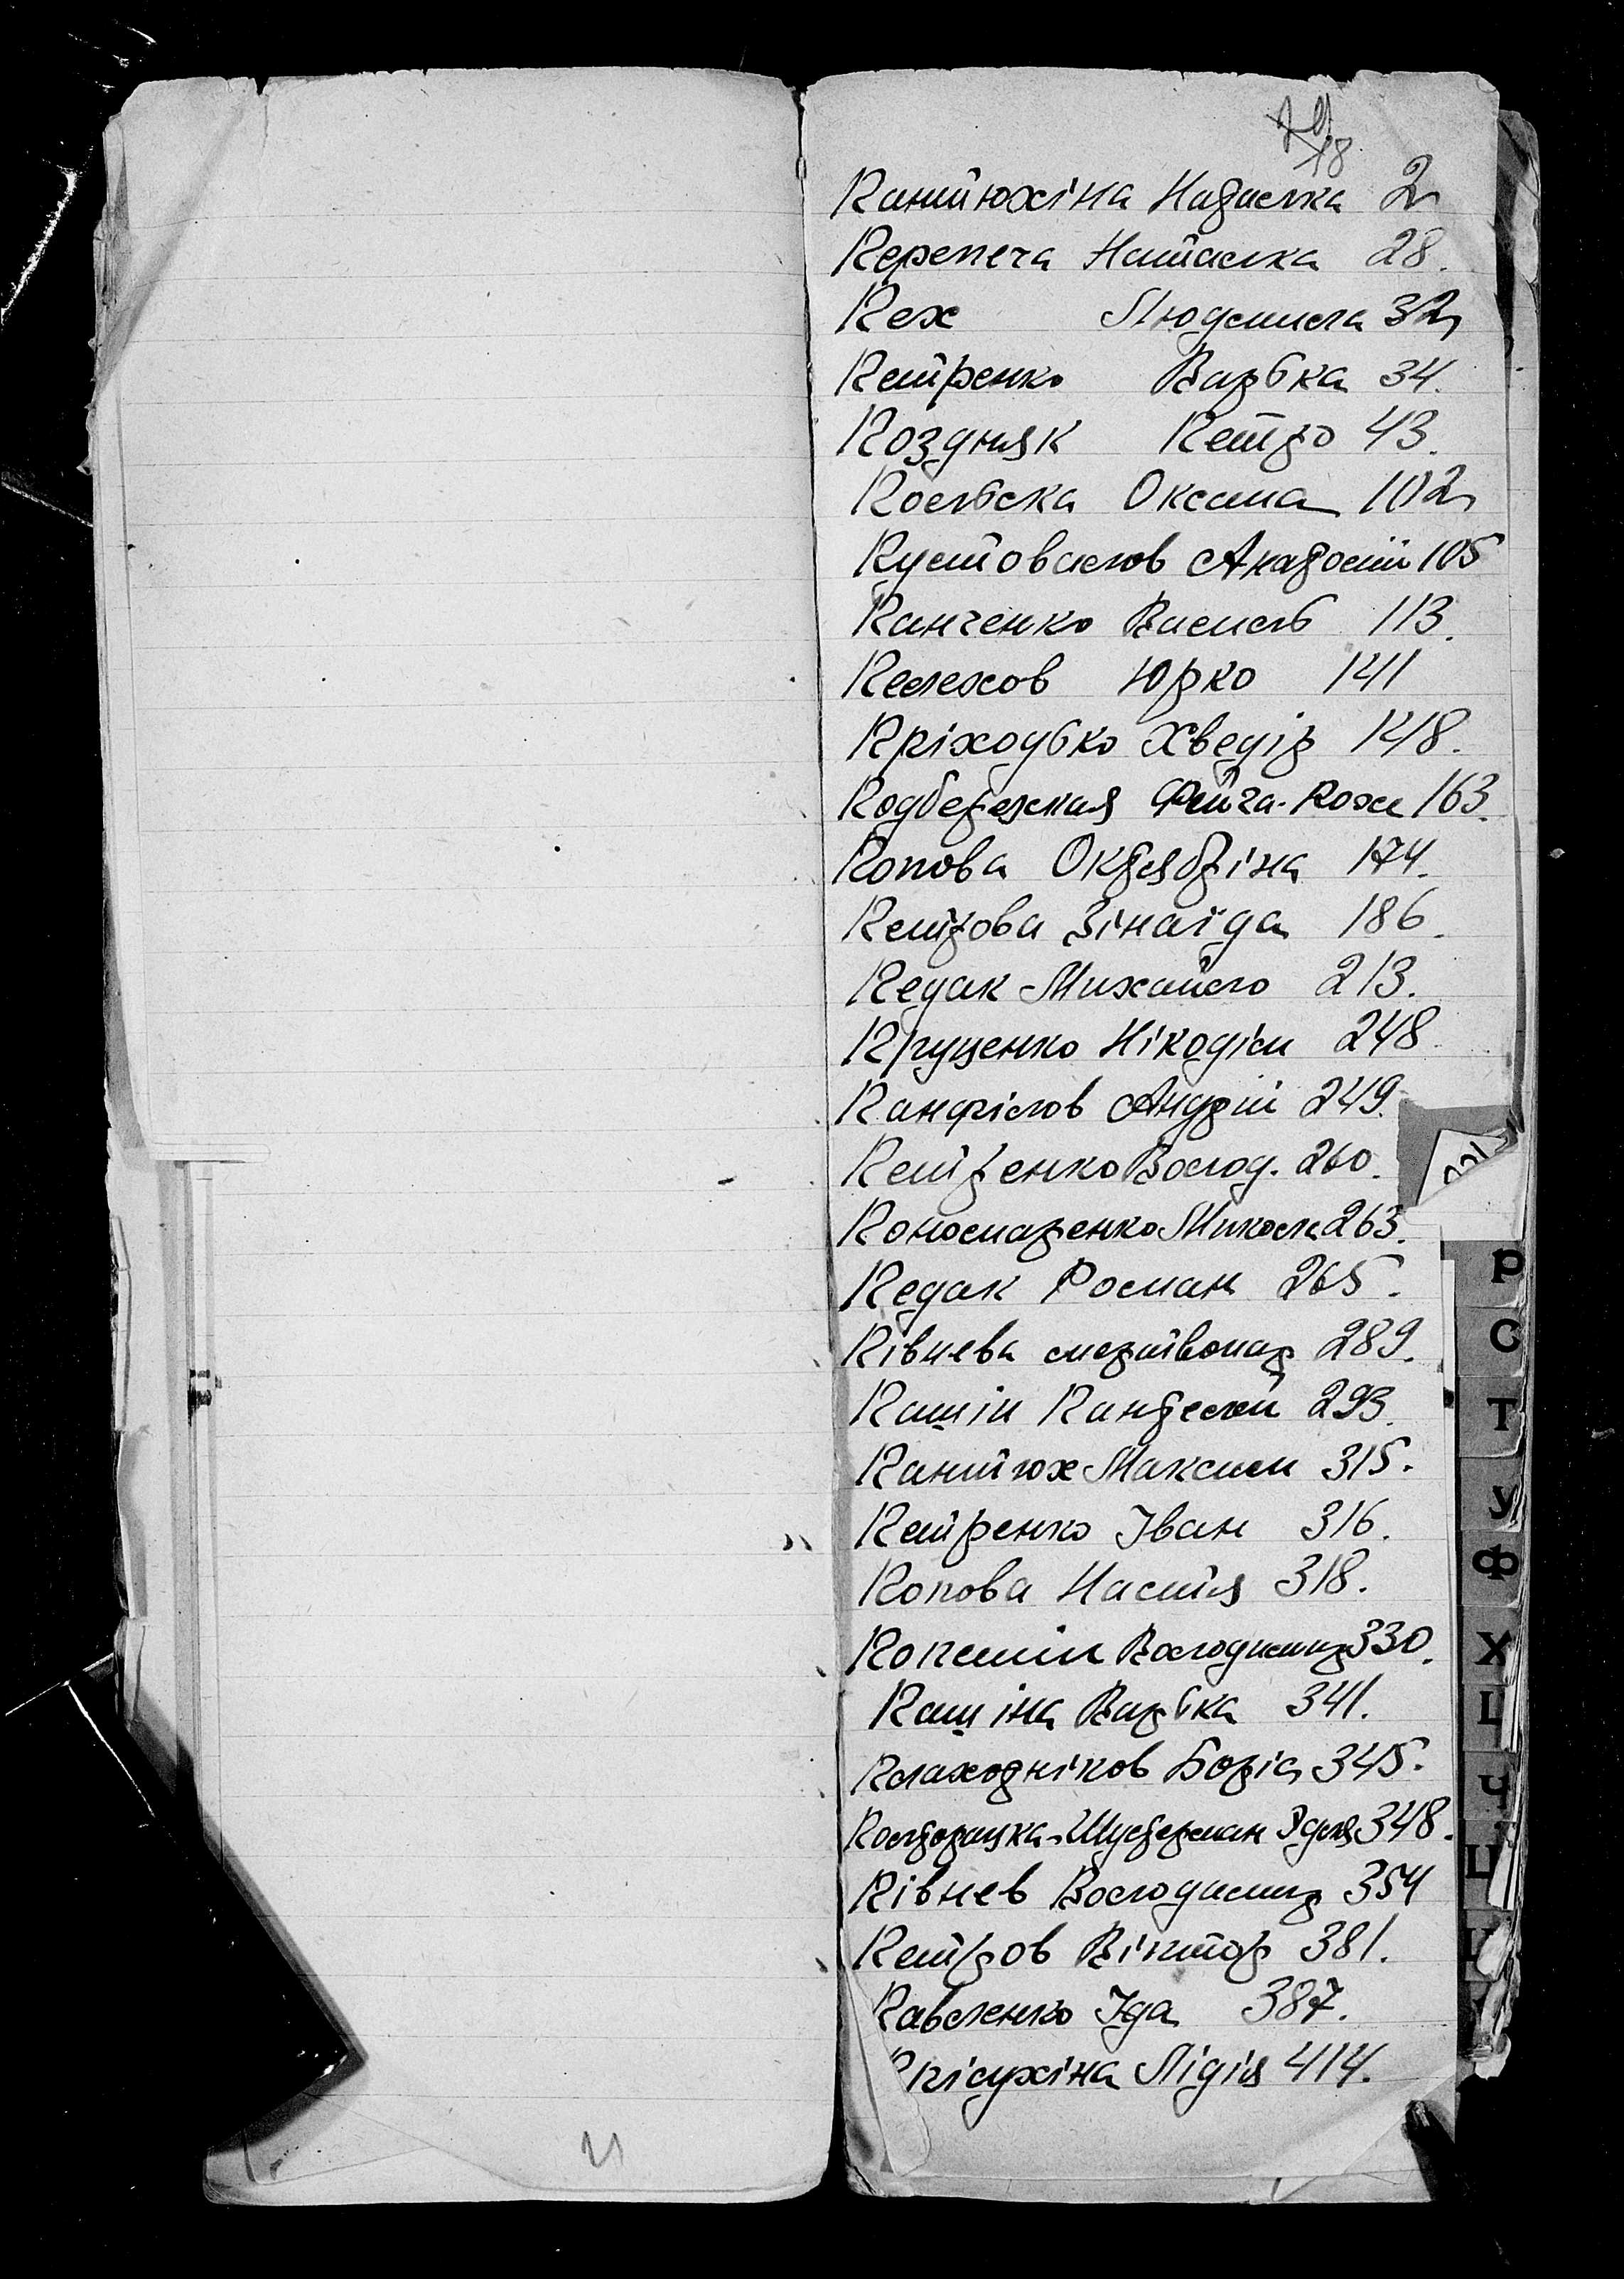 18
Пантюхіна Надалка 2
Перепеча Наталка 28.
Пех Людмила 32
Петренко Варька 34.
Поздняк Петро 43.
Польска Оксана 102
Пустовалов Анатолій 105
Панченко Василь 113.
Пелехов Юрко 141
Пріходько Хведір 148.
Подбережная Фейга-Роже 163.
Попова Октябріна 174.
Петрова Зінаїда 186.
Педак Михайло 213.
Пруценко Нікодім 248
Панфілов Андрій 249.
Петренко Волод. 260.
Пономаренко Микола 263.
Педак Роман 265.
Півнева мертвонар 289.
Пашін Пантелей 293.
Пантюх Максим 315.
Петренко Іван 316.
Попова Настя 318.
Володимир 330.
Пашіна Варька 341.
Плаходніков Боріс 345.
Полторацка-Шустерман Эдля 348.
Півнев Володимир 354
Петров Віктор 381.
Павленко Іда 387.
Лідія 414.
Р
С
Т
У
Ф
Х
Ц
Ч
21